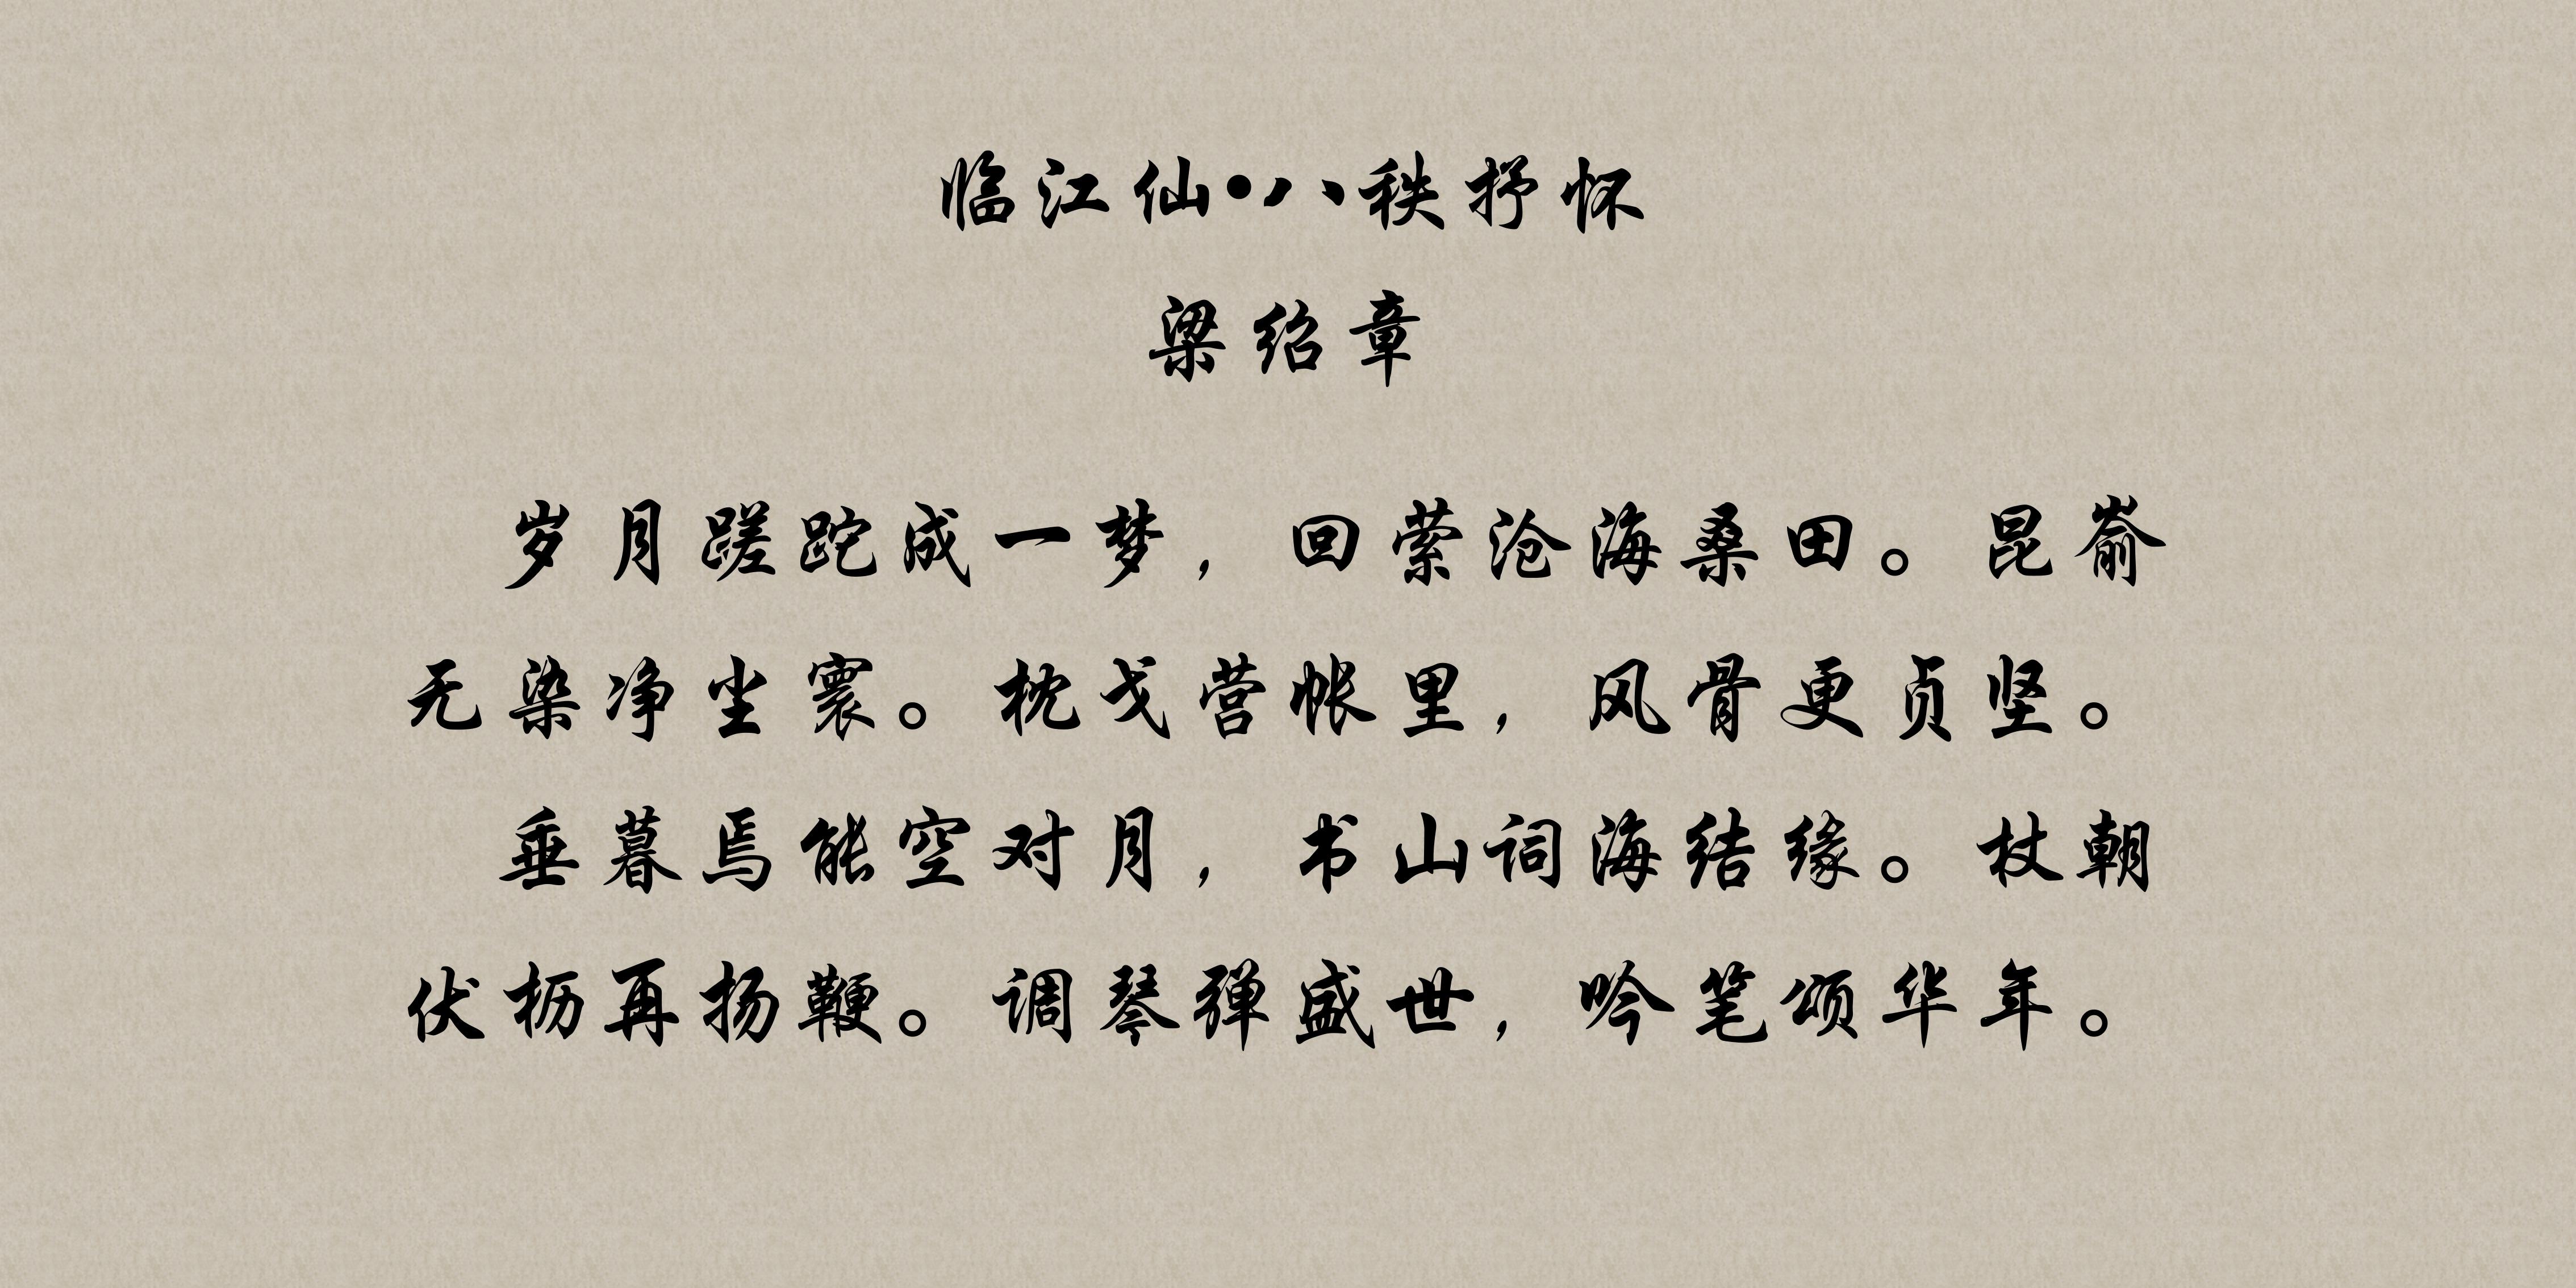 临江仙•八秩抒怀
梁绍章
岁月蹉跎成一梦，回萦沧海桑田。昆嵛
无染净尘寰。枕戈营帐里，风骨更贞坚。
垂暮焉能空对月，书山词海结缘。杖朝
伏枥再扬鞭。调琴弹盛世，吟笔颂华年。